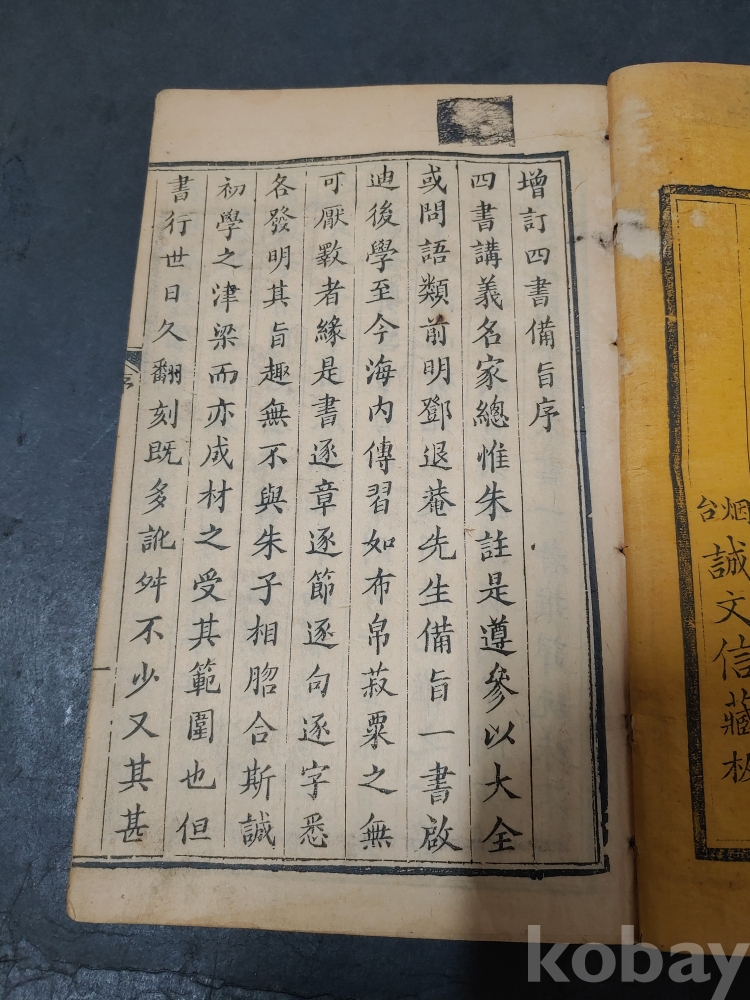 增訂四書備旨序
四書講義名家總惟朱註是遵參以大全
或問語類前明鄧退菴先生備旨一書啟
迪後學至今海內傳習如布帛菽粟之無
可厭斁者緣是書逐章逐節逐句逐字悉
各發明其旨趣無不與朱子相脗合斯誠
初學之津梁而亦成材之受其範圍也但
書行世日久翻刻既多訛舛不少又其甚
序
烟台
誠文信藏板
kobay